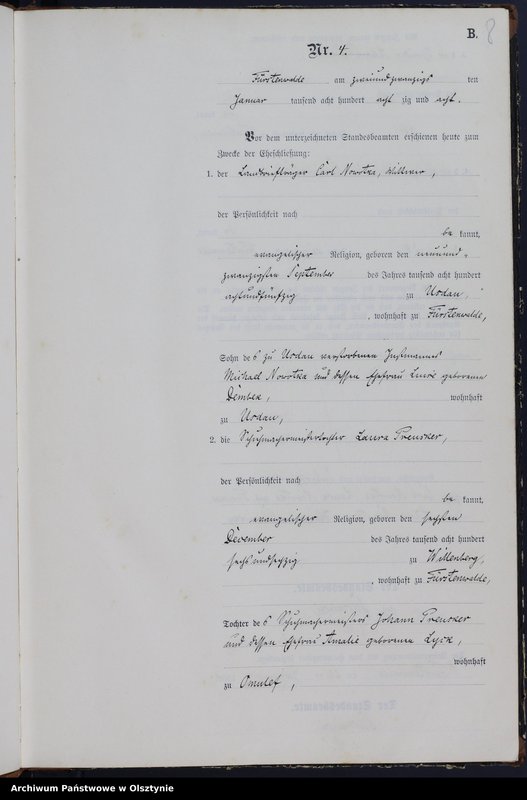 B.
8
Nr. 4.
Fürstenwalde am zweiundzwanzigs ten
Januar tausend acht hundert acht zig und acht.
Vor dem unterzeichneten Standesbeamten erschienen heute zum
Zwecke der Eheschließung:
1. der Landbriefträger Carl Nowotka, Wittwer,
der Persönlichkeit nach
be kannt,
evangelischer Religion, geboren den neunund-
zwanzigsten September des Jahres tausend acht hundert
achtundfünfzig zu Usdau,
, wohnhaft zu Fürstenwalde,
Sohn des zu Usdau verstorbenen Instmannes
Michael Nowotka und dessen Ehefrau geborenen
Dembek, wohnhaft
zu Usdau,
2. die Schuhmachermeistertochter Laura Preusker,
der Persönlichkeit nach
be kannt,
evangelischer Religion, geboren den sechsten
December des Jahres tausend acht hundert
sechsundsechzig zu Willenberg,
, wohnhaft zu Fürstenwalde,
Tochter des Schuhmachermeisters Johann Preusker
und dessen Ehefrau Amalie geborenen Lyck,
wohnhaft
zu Omulef,
Archiwum Państwowe w Olsztynie